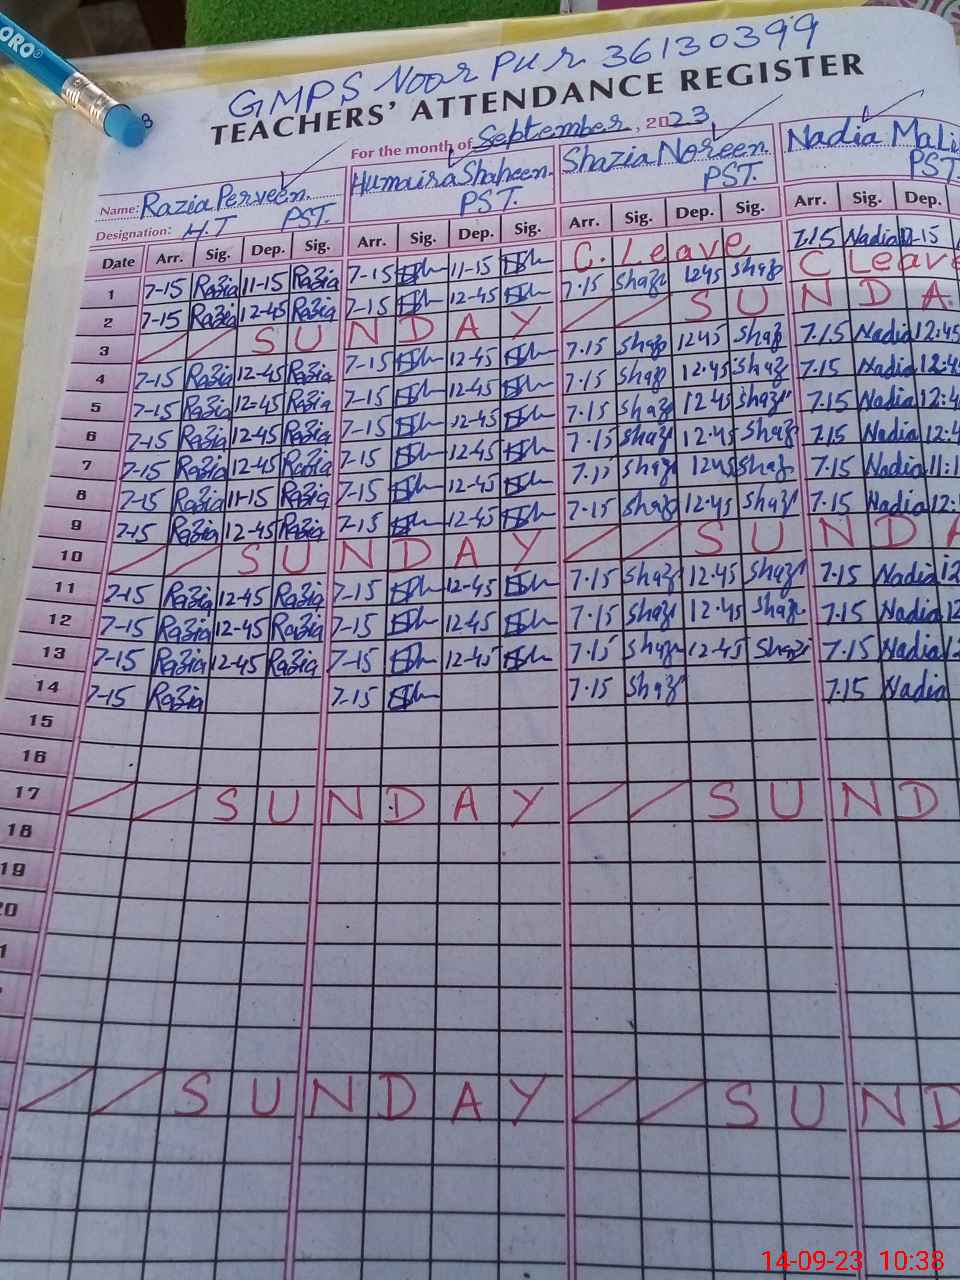 ORO®
GMPS Noor Pur 36130399
8
TEACHERS' ATTENDANCE REGISTER
For the month of September, 2023
Name: Razia Perveen Humaira Shaheen Shazia Noreen Nadia Mali
Designation: H.T PST. PST. PST. PST.
Date Arr. Sig. Dep. Sig. Arr. Sig. Dep. Sig. Arr. Sig. Dep. Sig. Arr. Sig. Dep.
1 7-15 Razia 11-15 Razia 7-15 11-15 C. Leave 7.15 Nadia
2 7-15 Razia 12-45 Razia 7-15 12-45 7.15 Shaz 1245 Shaz C Leave
3 // SUNDAY // SUNDA
4 7-15 Razia 12-45 Razia 7-15 12-45 7.15 Shaz 1245 Shaz 7.15 Nadia 12:45
5 7-15 Razia 12-45 Razia 7-15 12-45 7.15 Shaz 12.45 Shaz 7.15 Nadia 12:4
6 7-15 Razia 12-45 Razia 7-15 12-45 7.15 Shaz 12.45 Shaz 7.15 Nadia 12:4
7 7-15 Razia 12-45 Razia 7-15 12-45 7.15 Shaz 12.45 Shaz 7.15 Nadia 12:4
8 7-15 Razia 11-15 Razia 7-15 12-45 Shaz 1245 Shaz 7.15 Nadia 11:1
9 7-15 Razia 12-45 Razia 7-15 12-45 7.15 Shaz 12.45 Shaz 7.15 Nadia 12:
10 // SUNDAY // SUNDA
11 7-15 Razia 12-45 Razia 7-15 12-45 7.15 Shaz 12.45 Shaz 7.15 Nadia 12
12 7-15 Razia 12-45 Razia 7-15 12-45 7.15 Shaz 12.45 Shaz 7.15 Nadia 12
13 7-15 Razia 12-45 Razia 7-15 12-45 7.15 Shaz 12.45 Shaz 7.15 Nadia 12
14 7-15 Razia 7-15 7.15 Shaz 7.15 Nadia
15
16
17 // SUNDAY // SUND
18
19
20
1
// SUNDAY // SUND
14-09-23 10:38